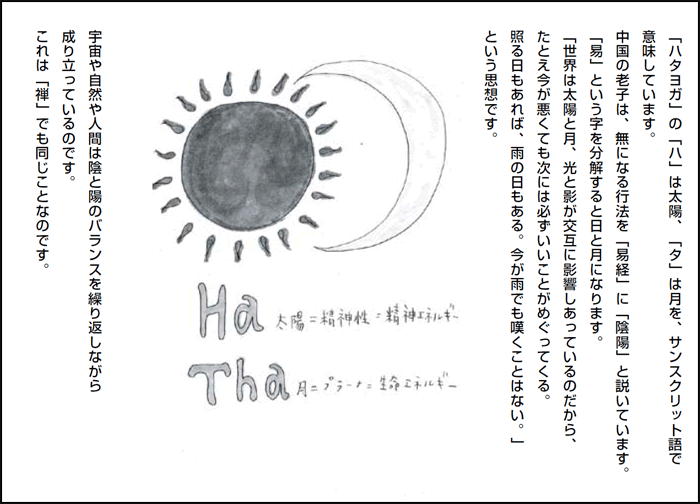 「ハタヨガ」の「ハ」は太陽、「タ」は月を、サンスクリット語で
意味しています。
中国の老子は、無になる行法を「易経」に「陰陽」と説いています。
「易」という字を分解すると日と月になります。
「世界は太陽と月、光と影が交互に影響しあっているのだから、
たとえ今が悪くても次には必ずいいことがめぐってくる。
照る日もあれば、雨の日もある。今が雨でも嘆くことはない。」
という思想です。
Ha 太陽=精神性=精神エネルギー
Tha 月=プラーナ=生命エネルギー
宇宙や自然や人間は陰と陽のバランスを繰り返しながら
成り立っているのです。
これは「禅」でも同じことなのです。